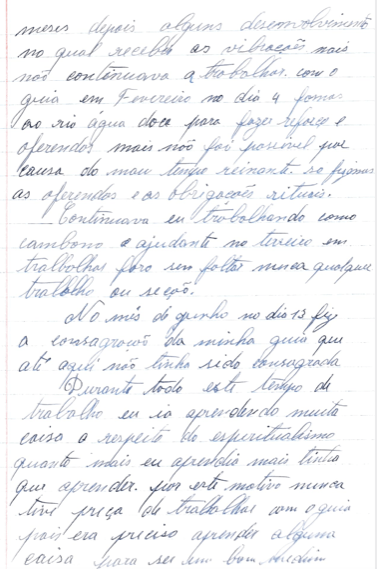 meses depois alguns desenvolvimento
no qual recebia as vibrações mais
não continuava a trabalhos. com o
guia em Fevereiro no dia 4 fomos
ao rio água doce para fazer reforço e
oferendas mais não foi possivel por
causa do mau tempo reinante so fizemos
as oferendas e as obrigações rituais.
Continuava eu trabalhando como
cambono e ajudante no terreiro em
trabalhos fora sem faltar nunca qualquer
trabalho ou seções.
No mês de junho no dia 13 fiz
a consagração da minha guia que
até aqui não tinha sido consagrada
Durante todo este tempo de
trabalho eu ia aprendendo muita
coisa a respeito do espiritualismo
quanto mais eu aprendia mais tinha
que aprender. por este motivo nunca
tive preça de trabalhar com o guia
pois era preciso aprender alguma
coisa para ser um bom medium